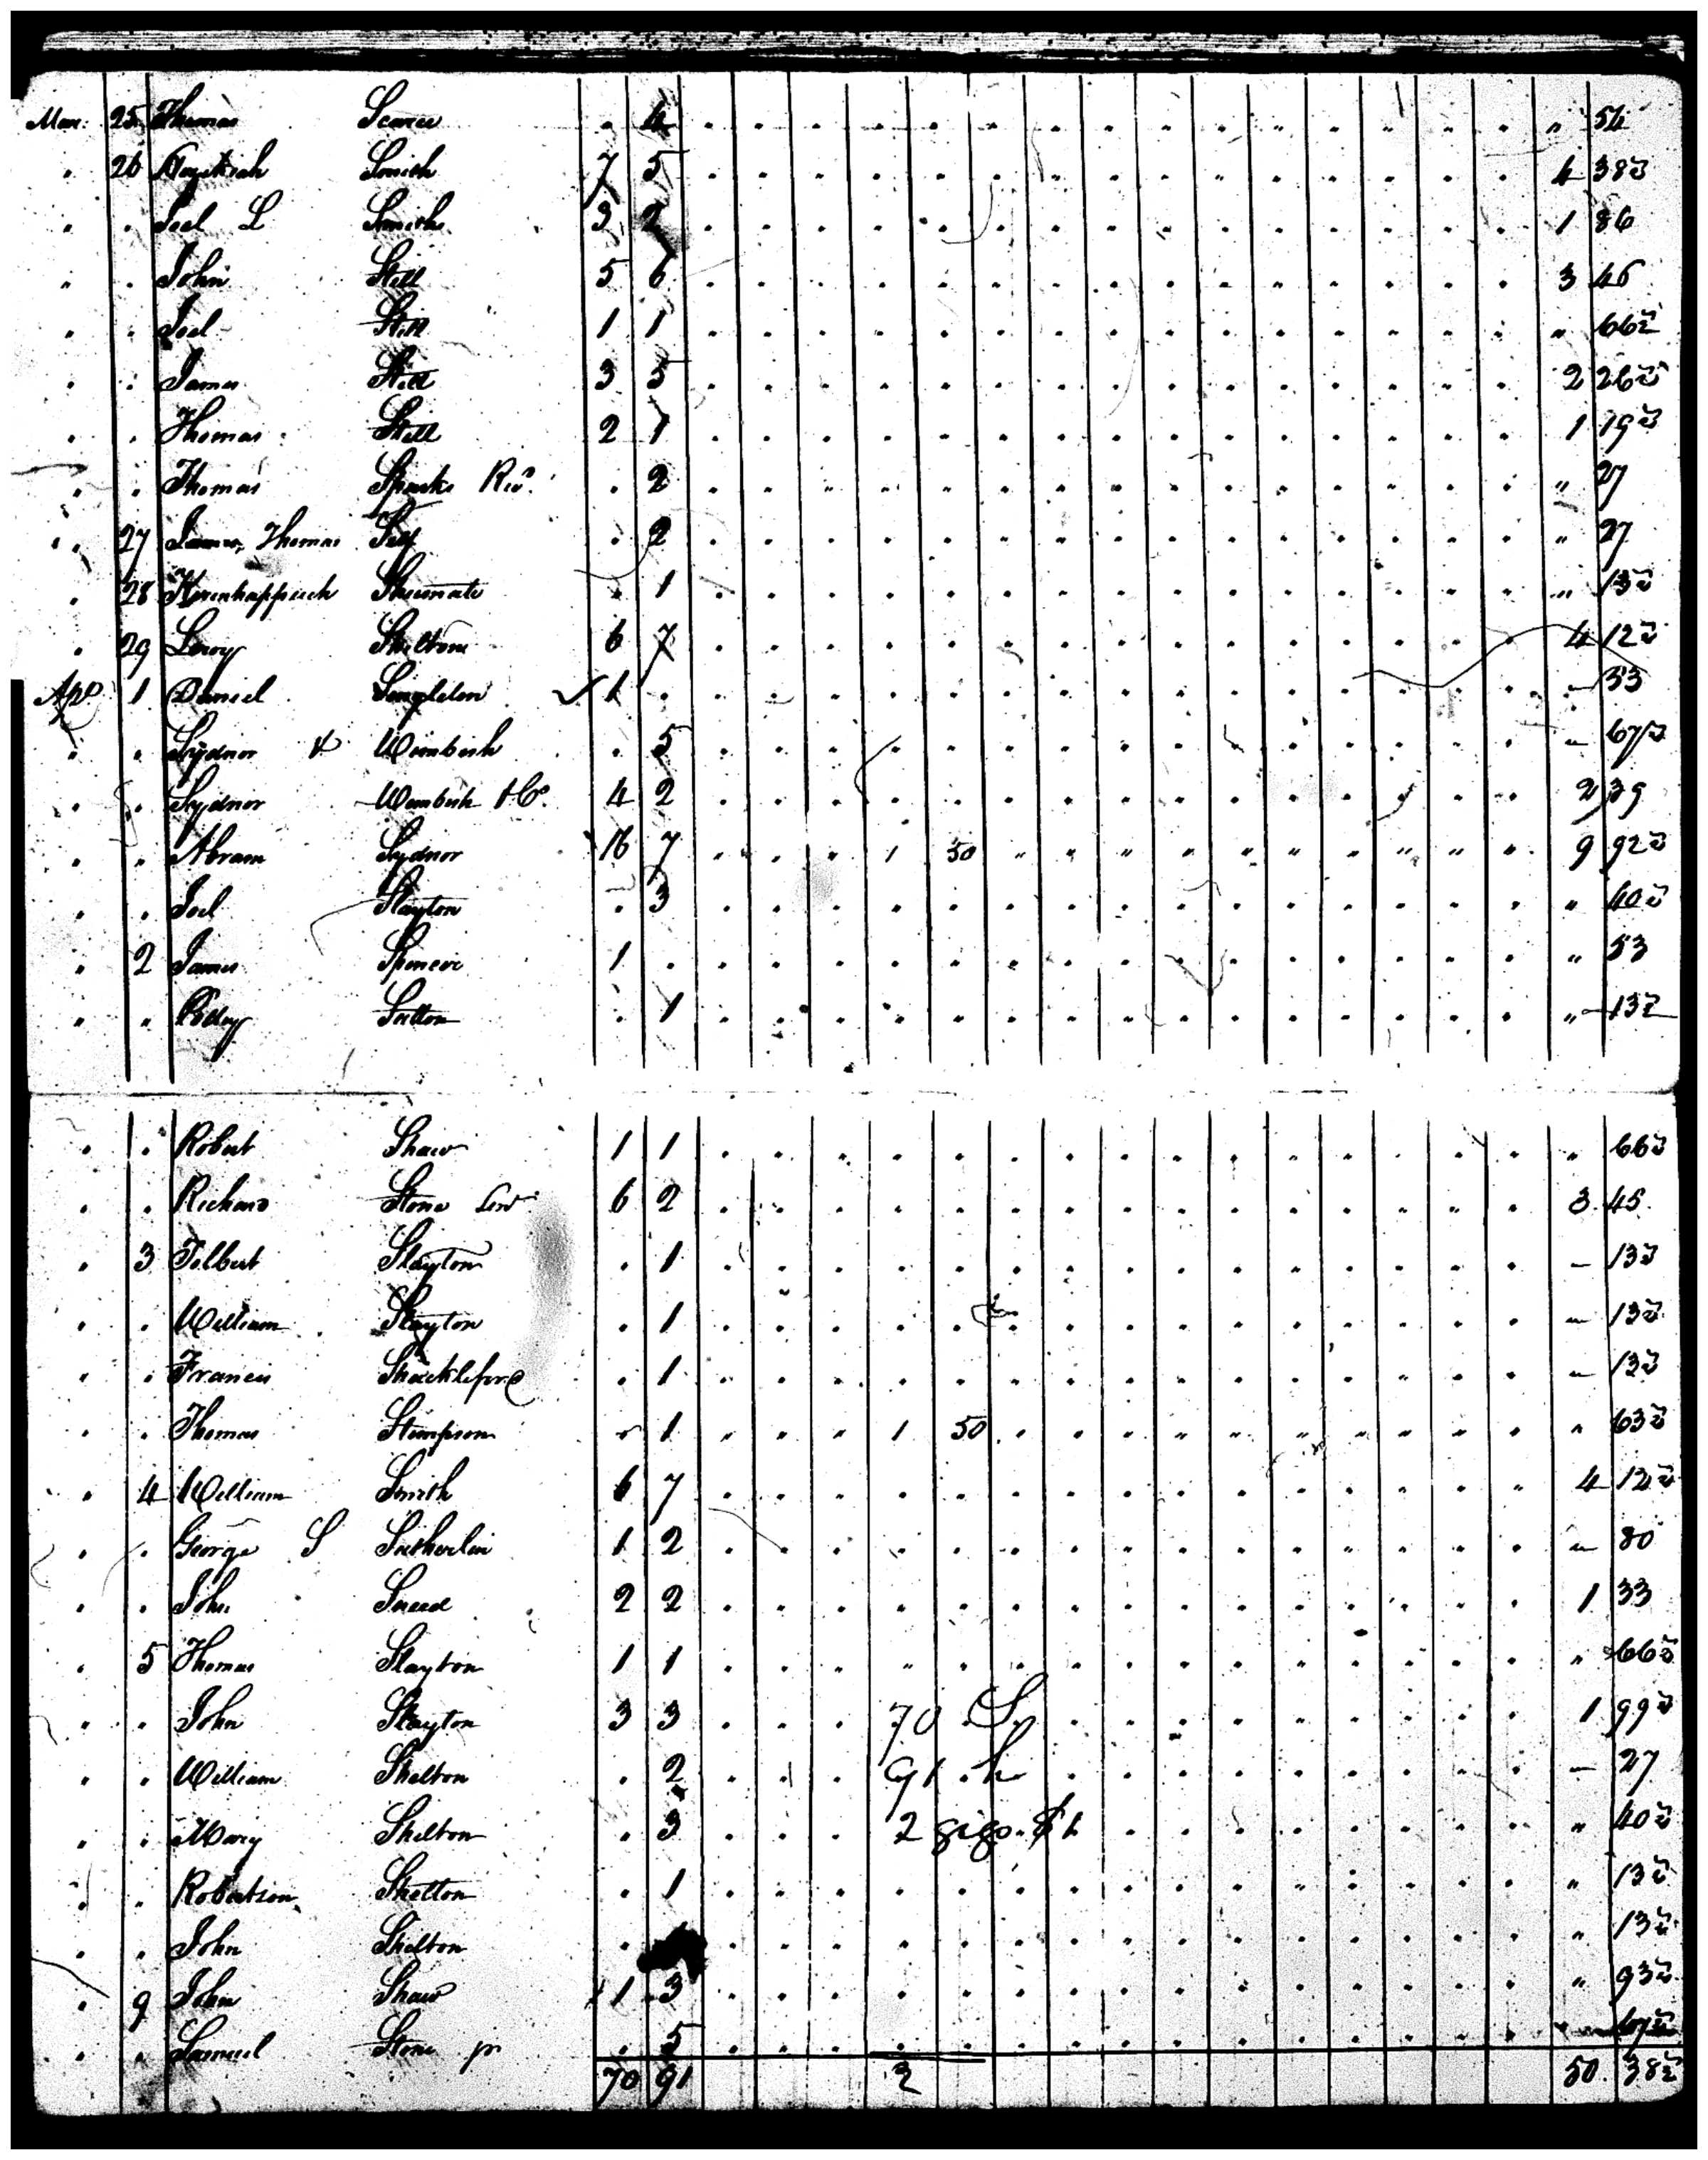 Mar. 25 Thomas Scarce . 4 " 54
. 26 Smith 7 5 4 38 2
. . Joel L Smith 3 2 1 86
. . John Still 5 6 3 46
. . Joel Still 1 1 " 66 2
. . James Still 3 5 2 26 2
. . Thomas Still 2 1 1 19 2
. . Thomas Sparks Rivr . 2 " 27
. . 27 Thomas Self . 2 " 27
. 28 Kerenhappuch Shumate . 1 " 13 2
. 29 Leroy Shelton 6 7 4 12 2
Apl 1 Daniel Singleton ✓ 1 . - 53
. . Sydnor & Wimbish . 5 - 67 2
. . Sydnor Wimbish & Co. 4 2 2 39
. " Abram Sydnor 16 7 " " " " 1 50 " " " " " " " " " " 9 92 2
. . Joel Slayton . 3 " 40 2
. 2 James Spencer 1 . " 53
. " Polley Sutton . 1 " 13 2
. . Robert Shaw 1 1 " 66 2
. . Richard Stone 6 2 3 45
. 3 Tolbert Slayton . 1 - 13 2
. . William Slayton . 1 - 13 2
. . Francis Shackleford . 1 - 13 2
. . Thomas Stimpson . 1 " " " 1 50 " 63 2
. 4 William Smith 6 7 4 12 2
. . George S Sutherlin 1 2 - 80
. . John Snead 2 2 1 33
. 5 Thomas Slayton 1 1 " 66 2
. . John Slayton 3 3 70 S. 1 99 2
. . William Shelton . 2 91 h - 27
. . Mary Shelton . 3 2 gigs $1 " 40 2
. . Robertson Shelton . 1 " 13 2
. . John Shelton . " 13 2
. 9 John Shaw 1 3 " 93 2
. " Samuel Stone jr . 5 67 2
70 91 2 50. 38 2